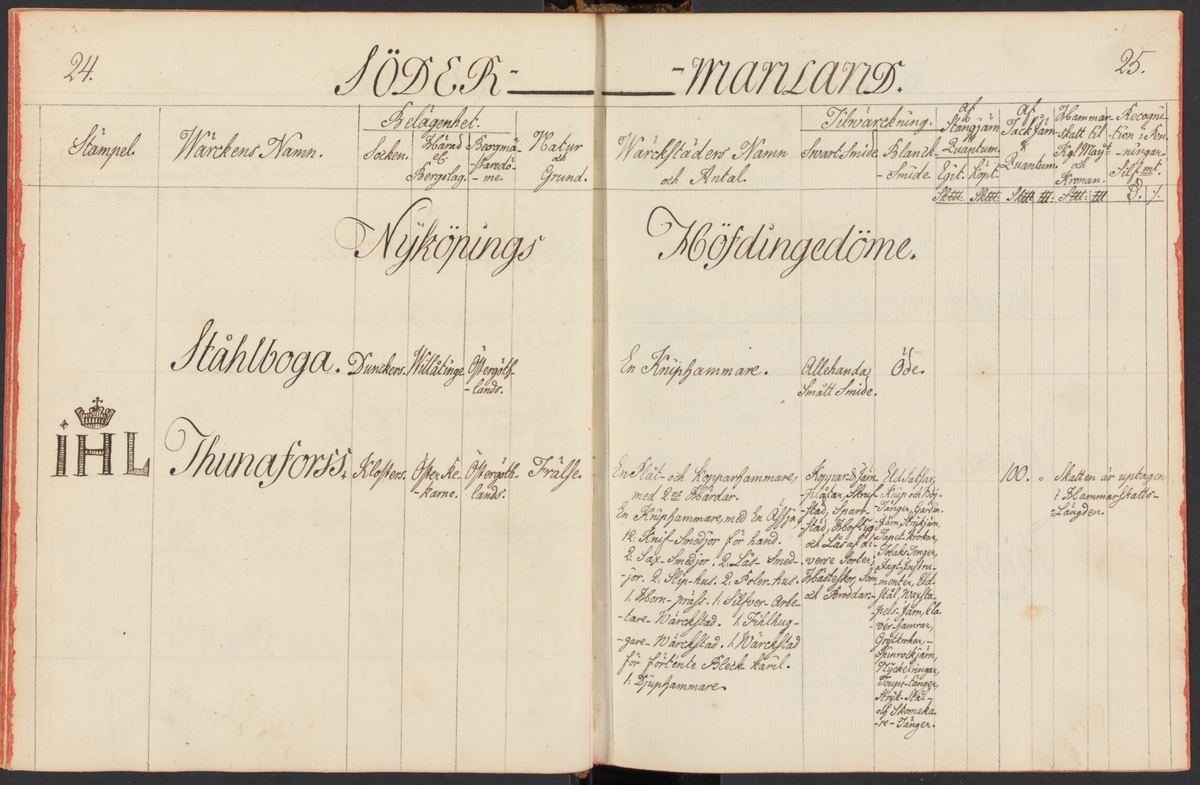 24.
SÖDER-
-MANLAND.
25.
Stämpel.
Wärckens Namn.
Belägenhet.
Socken.
Härad
el.
Bergslag.
Beorgmä-
-staredö-
-me.
Natur
och
Grund.
Wärckstäders Namn
och Antal.
Tilwärckning.
Svart Smide.
Blanck-
-Smide.
Af
Stångjärn
Quantum.
Egit.
Köpt.
Af
Tackjärn
Quantum.
Hammar-
skatt til
Kgl. Mayt
och
Kronan.
Recogni
tion i Pen-
-ningar.
Silf. mt.
Nyköpings
Höfdingedöme.
Ståhlboga.
Dunckers.
Willåtinge
Östergöth-
-lands.
En Kniphammare.
Allehanda
Smått Smide.
Öde.
IHL
Thunaforss.
Klosters.
Öster Re-
-karne.
Östergöth-
lands.
Frälse.
En Plåt- och Kopparhammare,
med 2ne Härdar.
En Kniphammare, med En Ässja
12. Knif-Smedjor för hand.
2. Sax-Smedjor. 2. Lås-Smed-
-jor. 2. Slip-hus. 2. Poler-hus.
1. Horn-präss. 1. Silfver-Arbe-
-tare-Wärckstad. 1. Fihlhug-
-gare-Wärckstad. 1. Wärckstad
för förtente Bleck Käril.
1. Djuphammare.
Koppar & Järn-
-plåtar, Skruf-
-städ, Sparr-
-städ, Hoftyg
och Lås af di-
-verse Sorter,
Hästeskor, Söm
och Broddar.
Eld Satser,
Knip och Böj-
-Tänger, Gardin-
-Järn, Strykjärn,
Tapet-Krokar,
Tobaks Tenger,
Jagt-Instru-
-menter, Eld-
-Stål, Waxsta-
-pels-Järn, Cla-
-vér-hamrar,
Grytkrokar,
Spinrocksjärn,
Nyckelringar,
Toupé-tänger,
Stryk-Stål-
och Skomaka-
-re-Tänger.
100. "
Skatten är uptagen
i Hammarskatts-
Längden.